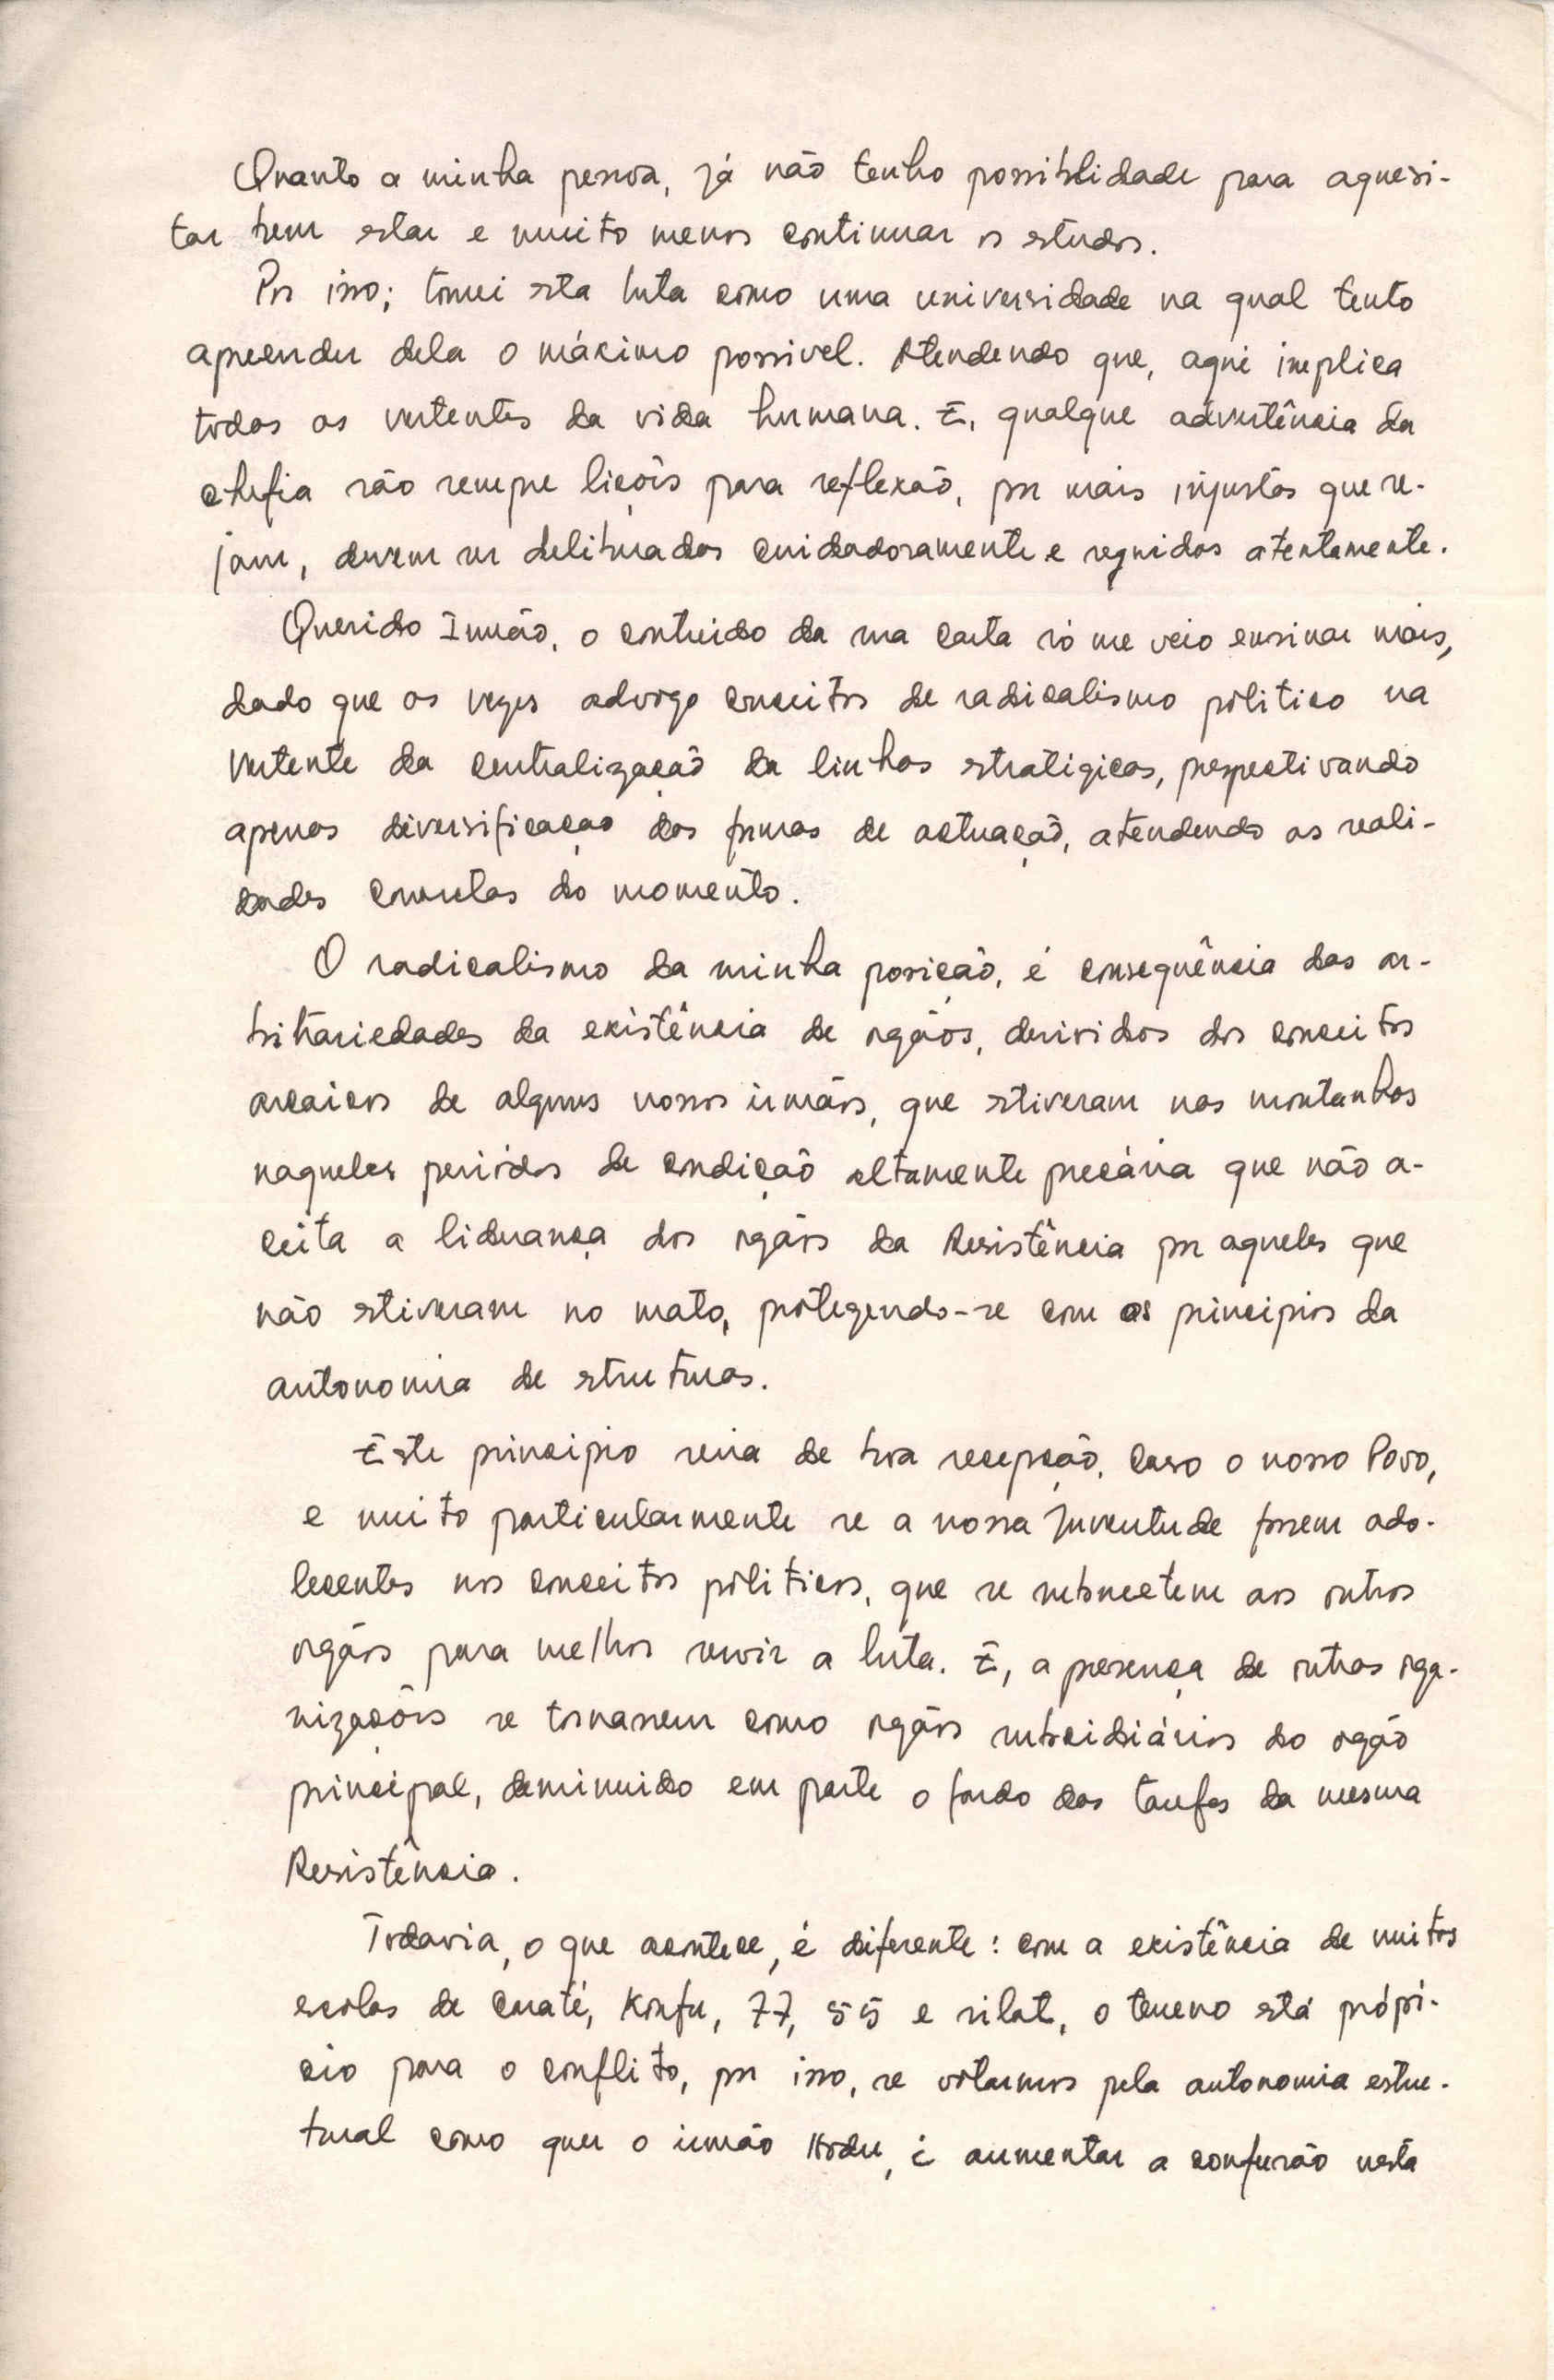 Quanto a minha pessoa, já não tenho possiblidade para aquesi-
tar bem estar e muito menos continuar os estudos.
Por isso; tomei esta luta como uma universidade na qual tento
apreender dela o máximo possivel. Atendendo que, aqui implica
todas as vertentes da vida humana. E, qualque advertência da
chefia são sempre liçoẽs para reflexão, por mais injustas que se-
jam, devem ser delibradas cuidadosamente e seguidas atentamente.
Querido Irmão, o contuido da sua carta só me veio ensinar mais,
dado que as vezes advogo conceitos de radicalismo politico na
vertente da centralização da linhas estratigicas, prespectivando
apenas diversificaçao das formas de actuação, atendendo as reali-
dades concretas do momento.
O radicalismo da minha posição, é consequência das ar-
bitrariedades da existência de orgãos, derividos dos conceitos
arcaicos de alguns nossos irmãos, que estiveram nas montanhas
naqueles periódos de condição altamente precária que não a-
ceita a liderança dos orgãos da Resistência por aqueles que
não estiveram no mato, protegendo-se com os principios da
autonomia de estruturas.
Este principio seria de boa recepção, caso o nosso Povo,
e muito particularmente se a nossa Juventude fossem ado-
lecentes nos conceitos politicos, que se submetem aos outros
orgãos para melhor servir a luta. E, a presença de outras orga-
nizações se tornassem como orgãos subsidiários do orgão
principal, deminuido em parte o fardo das tarefas da mesma
Resistência.
Todavia, o que acontece, é diferente: com a existência de muitos
escolas de Caraté, Konfu, 77, 55 e silat, o terreno está própi-
cio para o conflito, por isso, se votarmos pela autonomia estru-
tural como quer o irmão Koder, é aumentar a confusão nesta